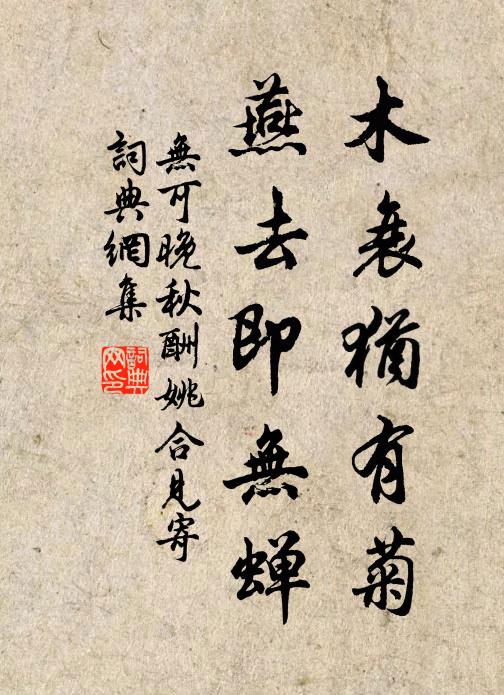 木衰猶有菊
燕去即無蝉
無可晚秋酬姚合見寄
詞典網集
詞典
网印